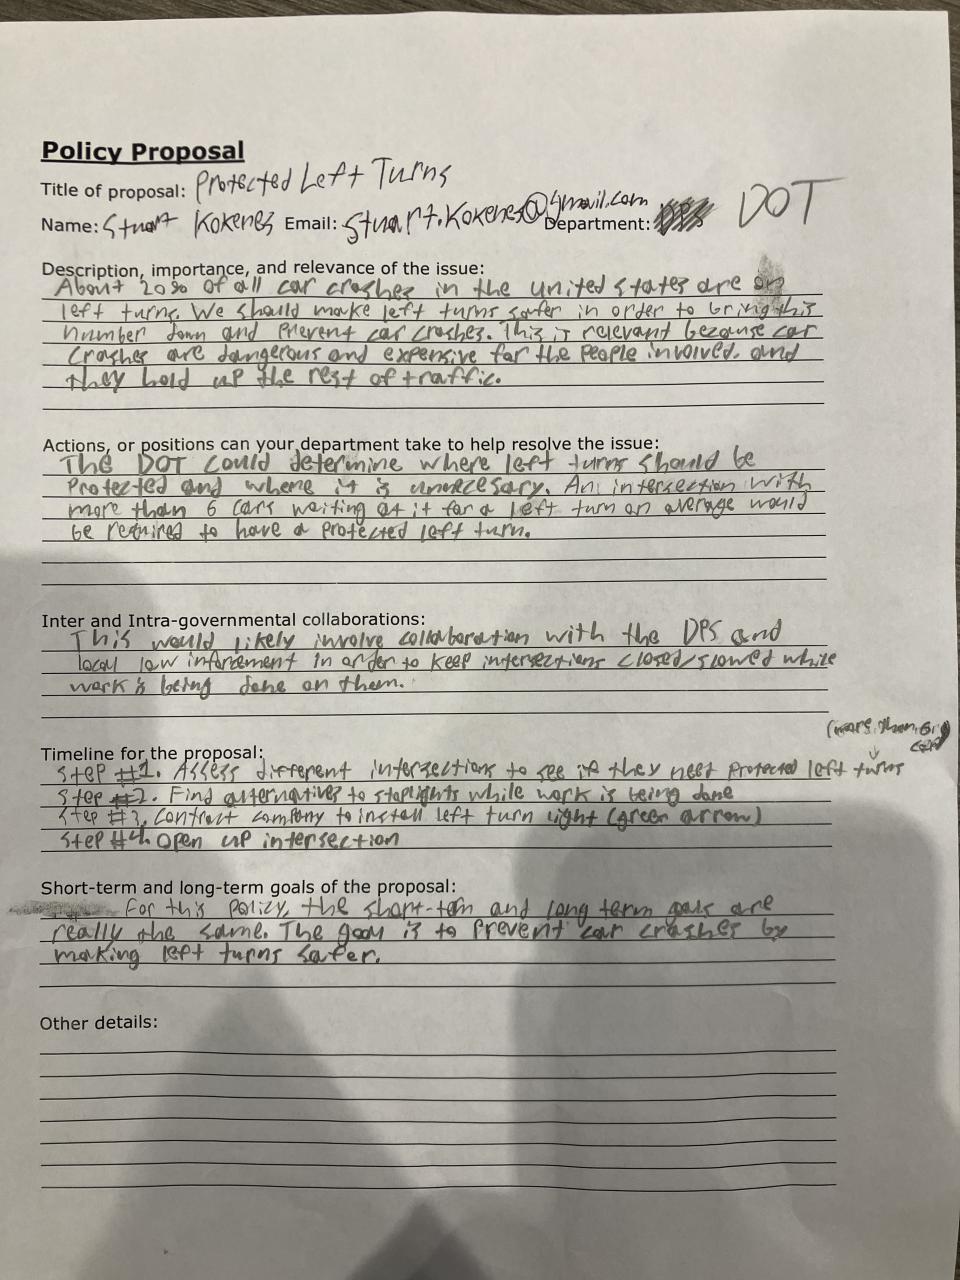 Policy Proposal
Title of proposal: Protected Left Turns
Name: Stuart Kokenes Email: Stuart.Kokenes@gmail.com Department: DOT
Description, importance, and relevance of the issue:
About 20% of all car crashes in the united states are on
left turns. We should make left turns safer in order to bring this
number down and prevent car crashes. This is relevant because car
crashes are dangerous and expensive for the people involved. and
they hold up the rest of traffic.
Actions, or positions can your department take to help resolve the issue:
The DOT could determine where left turns should be
protected and where it is unnecesary. An intersection with
more than 6 cars waiting at it for a left turn on average would
be required to have a protected left turn.
Inter and Intra-governmental collaborations:
This would likely involve collaboration with the DPS and
local law inforcement in order to keep intersections closed/slowed while
work is being done on them.
(more than 6
cars)
Timeline for the proposal:
Step #1. Assess different intersections to see if they need protected left turns
Step #2. Find alternatives to stoplights while work is being done
Step #3. Contract company to install left turn light (green arrow)
Step #4. Open up intersection
Short-term and long-term goals of the proposal:
For this policy, the short-term and long term goals are
really the same. The goal is to prevent car crashes by
making left turns safer.
Other details: